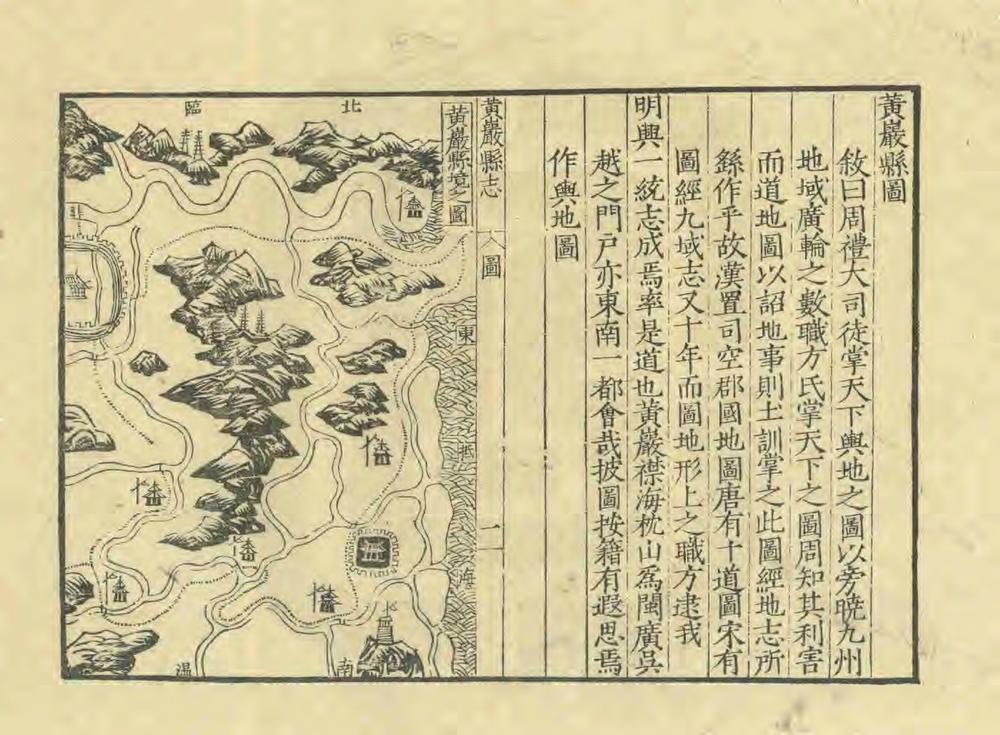 黃巖縣圖
敘曰周禮大司徒掌天下輿地之圖以旁曉九州
地域廣輪之數職方氏掌天下之圖周知其利害
而道地圖以詔地事則土訓掌之此圖經地志所
繇作乎故漢置司空郡國地圖唐有十道圖宋有
圖經九域志又十年而圖地形上之職方逮我
明興一統志成焉率是道也黃巖襟海枕山爲閩廣吳
越之門戶亦東南一都會哉披圖按籍有遐思焉
作輿地圖
黃巖縣志
圖
一
黃巖縣境之圖
北
臨
東
抵
海
南
溫